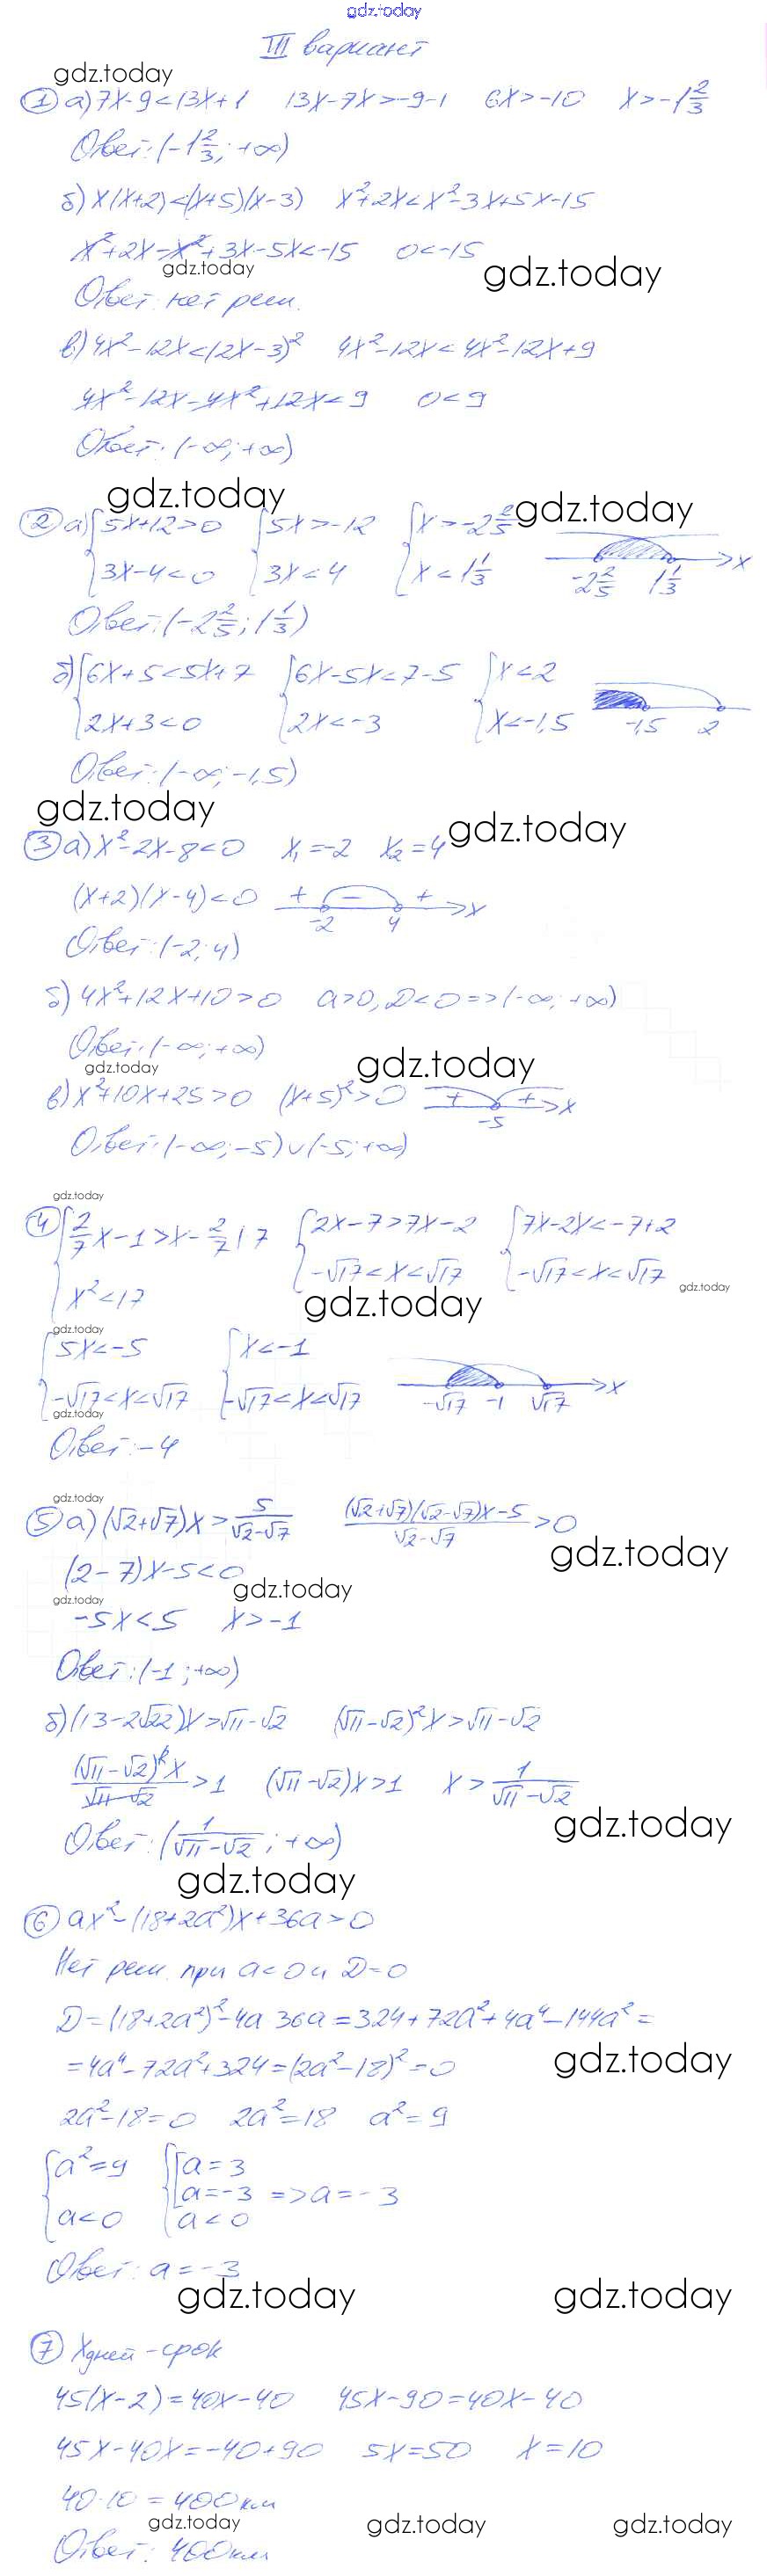 gdz.today
III вариант
gdz.today
① а) 7x-9<13x+1 13x-7x>-9-1 6x>-10 x>-1 2/3
Ответ: (-1 2/3; +∞)
б) x(x+2)<(x+5)(x-3) x²+2x<x²-3x+5x-15
x²+2x-x²+3x-5x<-15 0<-15
gdz.today gdz.today
Ответ: нет реш.
в) 4x²-12x<(2x-3)² 4x²-12x<4x²-12x+9
4x²-12x-4x²+12x<9 0<9
Ответ: (-∞; +∞)
gdz.today gdz.today
② а) { 5x+12>0 { 5x>-12 { x>-2 2/5
3x-4<0 3x<4 x<1 1/3 -2 2/5 1 1/3 x
Ответ: (-2 2/5; 1 1/3)
б) { 6x+5<5x+7 { 6x-5x<7-5 { x<2
2x+3<0 2x<-3 x<-1,5 -1,5 2
Ответ: (-∞; -1,5)
gdz.today gdz.today
③ а) x²-2x-8<0 x₁=-2 x₂=4
(x+2)(x-4)<0 + - + -2 4 x
Ответ: (-2; 4)
б) 4x²+12x+10>0 a>0, D<0 => (-∞; +∞)
Ответ: (-∞; +∞)
gdz.today gdz.today
в) x²+10x+25>0 (x+5)²>0 + + -5 x
Ответ: (-∞; -5)∪(-5; +∞)
gdz.today
④ { 2/7 x-1>x-2/7 | 7 { 2x-7>7x-2 { 7x-2x<-7+2
x²<17 -√17<x<√17 -√17<x<√17
gdz.today gdz.today
gdz.today
{ 5x<-5 { x<-1
-√17<x<√17 -√17<x<√17 -√17 -1 √17 x
gdz.today
Ответ: -4
gdz.today
⑤ а) (√2+√7)x>5/(√2-√7) ((√2+√7)(√2-√7)x-5)/(√2-√7)>0
gdz.today
(2-7)x-5<0
gdz.today
gdz.today
-5x<5 x>-1
Ответ: (-1; +∞)
б) (13-2√22)x>√11-√2 (√11-√2)²x>√11-√2
(√11-√2)²x/(√11-√2)>1 (√11-√2)x>1 x>1/(√11-√2)
gdz.today
Ответ: (1/(√11-√2); +∞)
gdz.today
⑥ ax²-(18+2a²)x+36a>0
Нет реш. при a<0 и D=0
D=(18+2a²)²-4a·36a=324+72a²+4a⁴-144a²=
=4a⁴-72a²+324=(2a²-18)²=0
gdz.today
2a²-18=0 2a²=18 a²=9
{ a²=9 { [ a=3
a=-3 => a=-3
a<0 a<0
Ответ: a=-3
gdz.today gdz.today
⑦ x дней - срок
45(x-2)=40x-40 45x-90=40x-40
45x-40x=-40+90 5x=50 x=10
40·10=400 км
gdz.today gdz.today gdz.today
Ответ: 400 км